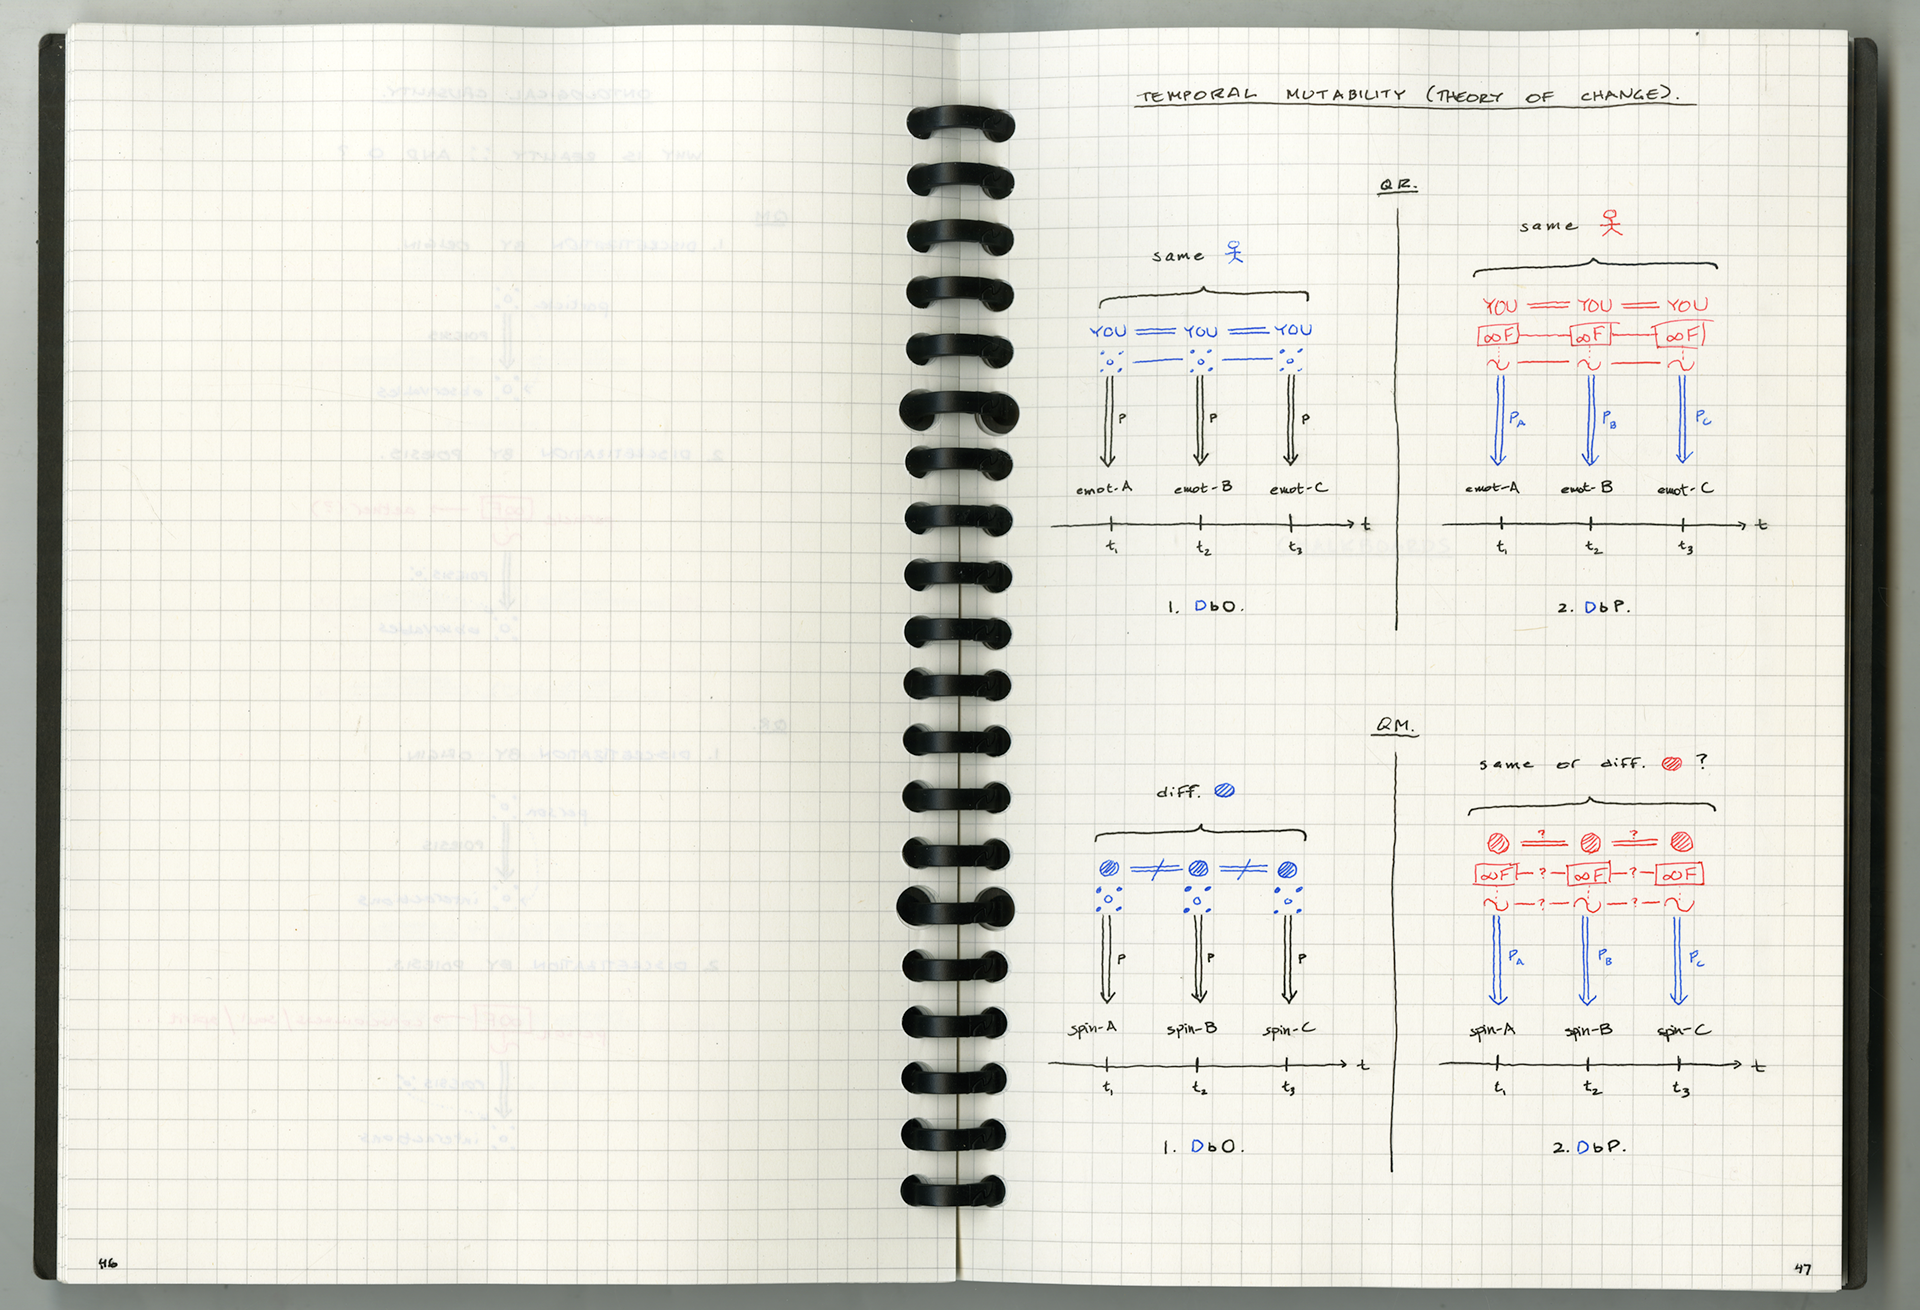 TEMPORAL MUTABILITY (THEORY OF CHANGE).
QR.
same
YOU = YOU = YOU
P P P
emot-A emot-B emot-C
t
t₁ t₂ t₃
1. DbO.
same
YOU = YOU = YOU
∞F ∞F ∞F
~ ~ ~
P_A P_B P_C
emot-A emot-B emot-C
t
t₁ t₂ t₃
2. DbP.
QM.
diff.
≠ ≠
P P P
spin-A spin-B spin-C
t
t₁ t₂ t₃
1. DbO.
same or diff. ?
? ?
∞F -?- ∞F -?- ∞F
~ -?- ~ -?- ~
P_A P_B P_C
spin-A spin-B spin-C
t
t₁ t₂ t₃
2. DbP.
46
47